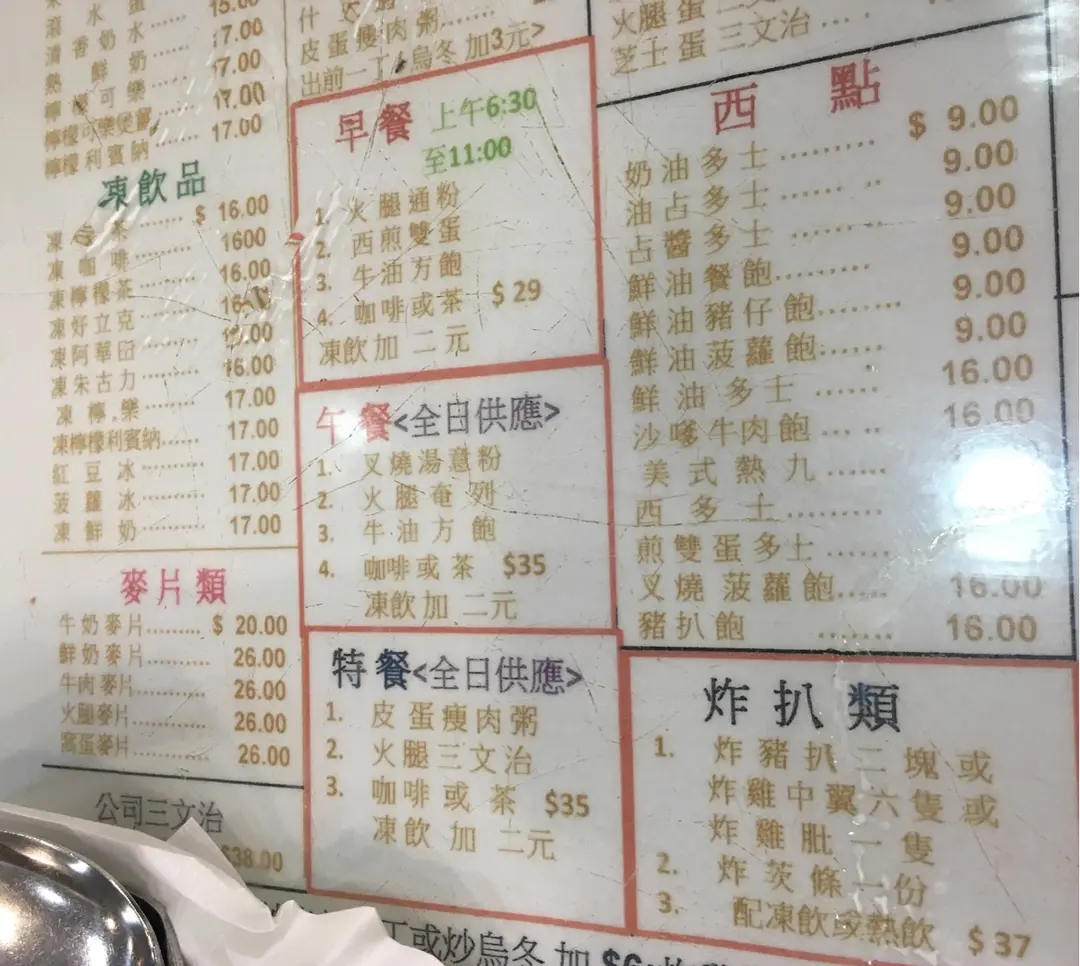 水蛋 15.00
滾 水 蛋 17.00
清 香 奶 水 17.00
熱 鮮 奶 ..... 17.00
檸 檬 可 樂 ..... 17.00
檸檬可樂煲薑 17.00
檸檬利賓納 ..... 17.00
凍飲品
凍 茶 ........ $ 16.00
凍 咖 啡 ........ 1600
凍檸檬茶 ........ 16.00
凍好立克 ........ 16.00
凍阿華田 ........ 16.00
凍朱古力 ........ 16.00
凍 檸 樂 ........ 17.00
凍檸檬利賓納...... 17.00
紅 豆 冰 ......... 17.00
菠 蘿 冰 ......... 17.00
凍 鮮 奶 ......... 17.00
麥片類
牛奶麥片......... $ 20.00
鮮奶麥片.......... 26.00
牛肉麥片.......... 26.00
火腿麥片......... 26.00
窩蛋麥片........... 26.00
公司三文治
$38.00
皮蛋瘦肉粥.......
出前一丁/烏冬 加3元>
早餐 上午6:30
至11:00
1. 火腿通粉
2. 西煎雙蛋
3. 牛油方飽
4. 咖啡或茶 $ 29
凍飲加 二元
午 餐<全日供應>
1. 叉燒湯意粉
2. 火腿奄列
3. 牛油方飽
4. 咖啡或茶 $35
凍飲加 二元
特 餐<全日供應>
1. 皮蛋瘦肉粥
2. 火腿三文治
3. 咖啡或 茶 $35
凍飲 加 二元
丁或炒烏冬 加 $6
火腿蛋三文治
芝士蛋三文治......
西 點
奶油多士 ......... $ 9.00
油占多士 ...... .. 9.00
占醬多士 ...... .. 9.00
鮮油餐飽......... 9.00
鮮油豬仔飽....... 9.00
鮮油菠蘿飽...... 9.00
鮮 油 多 士 ...... 16.00
沙嗲牛肉飽 ... .. 16.00
美 式 熱 九 ......
西 多 士 ........
煎雙蛋多士 ......
叉燒 菠蘿飽...... 16.00
豬扒飽 ....... 16.00
炸扒類
1. 炸豬扒二塊或
炸雞中翼六隻或
炸雞肶一隻
2. 炸茨條一份
3. 配凍飲或熱飲 $ 37